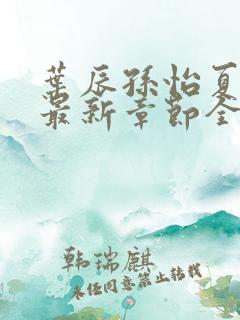 葉辰孫怡夏
最新章節全
韩瑞麒
未经同意禁止转载